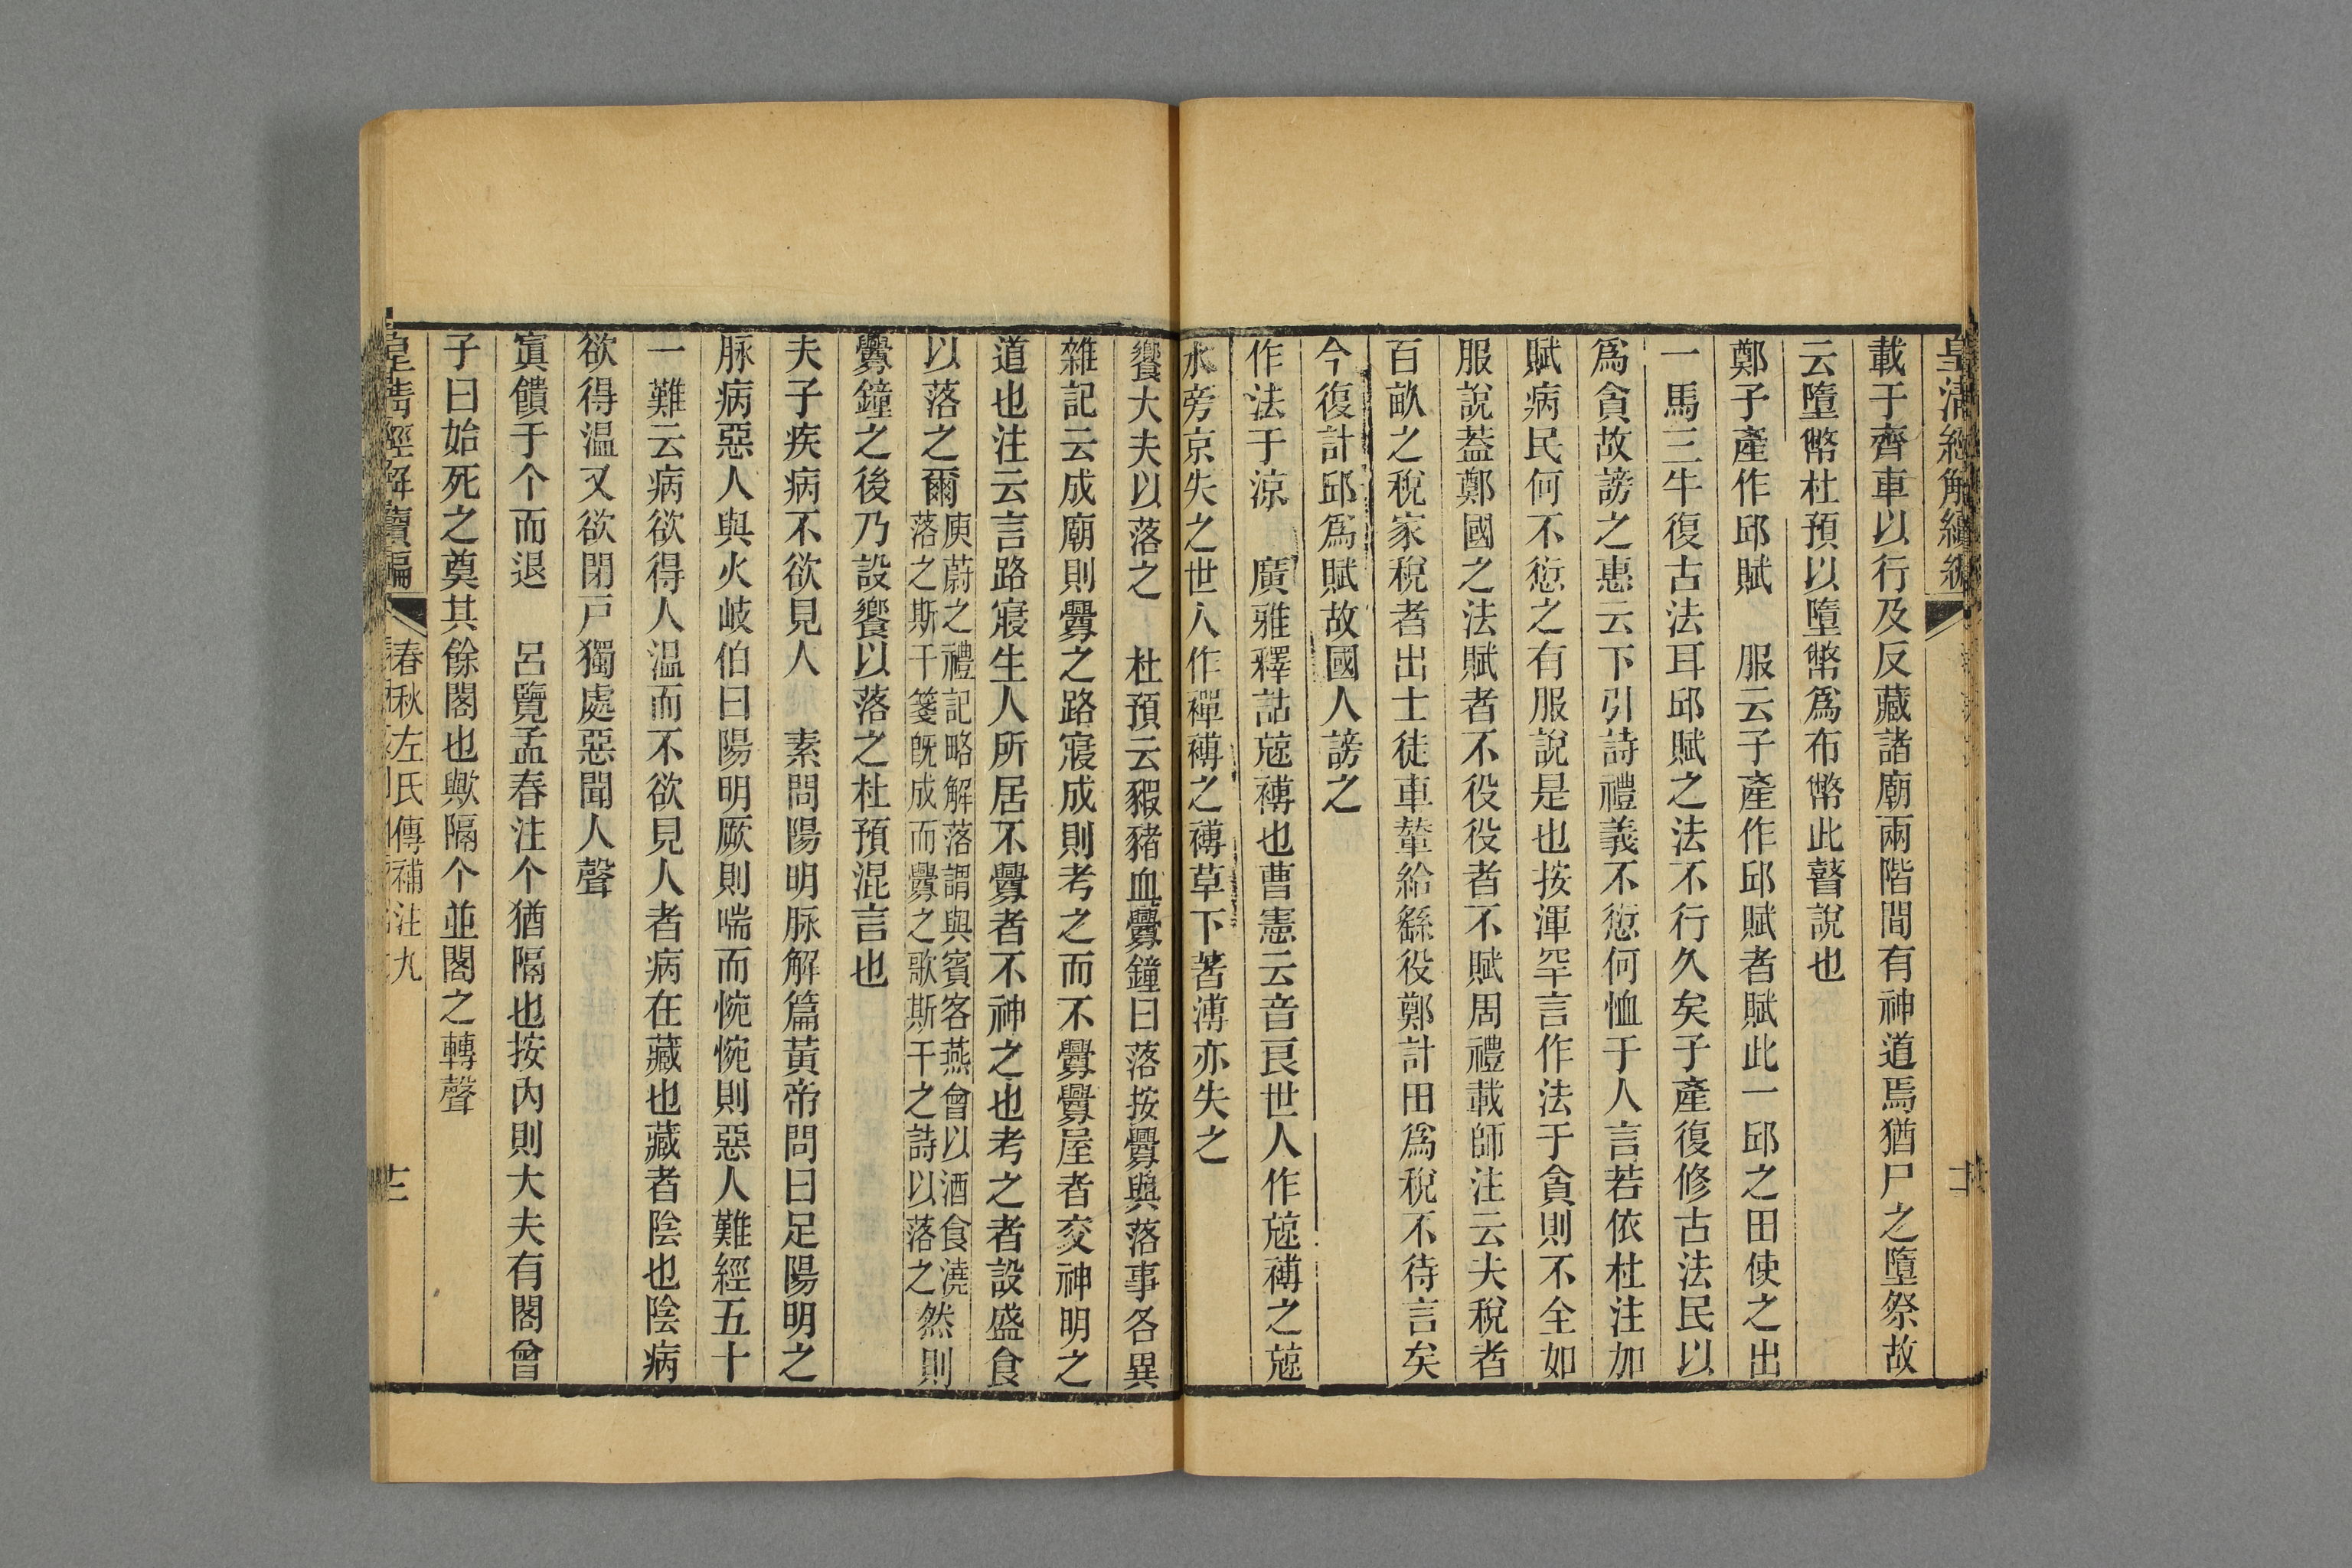 皇清經解續編
載于齊車以行及反藏諸廟兩階間有神道焉猶尸之墮祭故
云墮幣杜預以墮幣爲布幣此瞽說也
鄭子產作邱賦　服云子產作邱賦者賦此一邱之田使之出
一馬三牛復古法耳邱賦之法不行久矣子產復修古法民以
爲貪故謗之惠云下引詩禮義不愆何恤于人言若依杜注加
賦病民何不愆之有服說是也按渾罕言作法于貪則不全如
服說葢鄭國之法賦者不役役者不賦周禮載師注云夫稅者
百畝之稅家稅者出士徒車輦給繇役鄭計田爲稅不待言矣
今復計邱爲賦故國人謗之
作法于涼　廣雅釋詁䓖䙏也曹憲云音良世人作䓖䙏之䓖
水旁京失之世人作襌䙏之䙏草下著溥亦失之
饗大夫以落之　杜預云豭豬血釁鐘曰落按釁與落事各異
雜記云成廟則釁之路寢成則考之而不釁釁屋者交神明之
道也注云言路寢生人所居不釁者不神之也考之者設盛食
以落之爾庾蔚之禮記略解落謂與賓客燕會以酒食澆
落之斯干箋旣成而釁之歌斯干之詩以落之然則
釁鐘之後乃設饗以落之杜預混言也
夫子疾病不欲見人　素問陽明脉解篇黃帝問曰足陽明之
脉病惡人與火岐伯曰陽明厥則喘而惋惋則惡人難經五十
一難云病欲得人溫而不欲見人者病在藏也藏者陰也陰病
欲得温又欲閉戸獨處惡聞人聲
寘饋于个而退　呂覽孟春注个猶隔也按內則大夫有閣曾
子曰始死之奠其餘閣也歟隔个並閣之轉聲
皇淸經解續編　春秋左氏傳補注九　十二